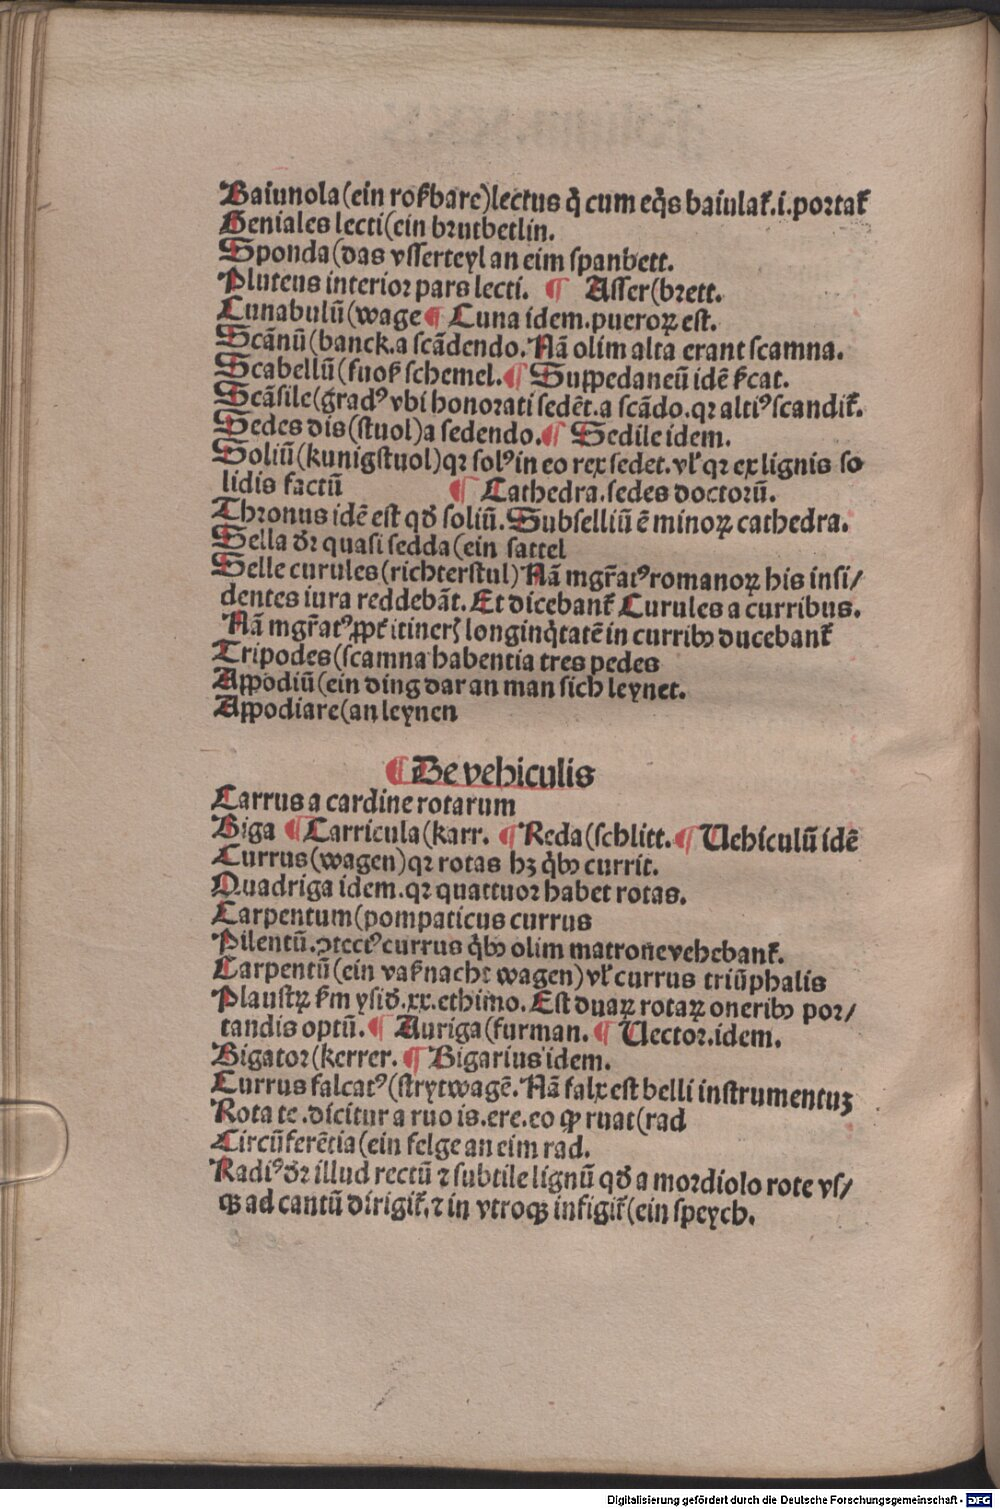 Baiunola(ein roſzbare)lectus q̇ cum eq̇s baiulat᷑.i.portat᷑
Geniales lecti(ein brutbetlin.
Sponda(das vſſerteyl an eim ſpanbett.
Pluteus interior pars lecti. ¶ Aſſer(brett.
Cunabulū(wage ¶ Cuna idem.pueroꝝ eſt.
Scānū(banck.a ſcādendo.Nā olim alta erant ſcamna.
Scabellū(fuoſz ſchemel.¶ Suppedaneū idē ſcat.
Scāſile(gradꝰ vbi honorati ſedēt.a ſcādo.qꝛ altiꝰ ſcandit᷑.
Sedes dis(ſtuol)a ſedendo.¶ Sedile idem.
Soliū(kunigſtuol)qꝛ ſolꝰ in eo rex ſedet.vl̓ qꝛ ex lignis ſo
lidis factū ¶ Cathedra.ſedes doctorū.
Thronus idē eſt qđ ſoliū.Subſelliū ē minoꝝ cathedra.
Sella dr̄ quaſi ſedda(ein ſattel
Selle curules(richterſtul)Nā mgr̄atꝰ romanoꝝ his inſi/
dentes iura reddebāt.Et dicebant᷑ Curules a curribus.
Nā mgr̄atꝰ ꝓpt̓ itineꝝ longinq̇tatē in curribꝫ ducebant᷑
Tripodes(ſcamna habentia tres pedes
Appodiū(ein ding dar an man ſich leynet.
Appodiare(an leynen
¶ De vehiculis
Carrus a cardine rotarum
Biga ¶ Carricula(karr. ¶ Reda(ſchlitt.¶ Uehiculū idē
Currus(wagen)qꝛ rotas hꝫ q̇bꝫ currit.
Quadriga idem.qꝛ quattuor habet rotas.
Carpentum(pompaticus currus
Pilentū.ꝯtectꝰ currus q̇bꝫ olim matrone vehebant᷑.
Carpentū(ein vaſznacht wagen)vl̓ currus triūphalis
Plauſtꝝ ẜm yſid̓.xx.ethimo.Eſt duaꝝ rotaꝝ oneribꝫ por/
tandis optū.¶ Auriga(furman. ¶ Uector.idem.
Bigator(kerrer.¶ Bigarius idem.
Currus falcatꝰ(ſtrytwagē.Nā falx eſt belli inſtrumentuꝫ
Rota te.dicitur a ruo is.ere.eo ꝙ ruat(rad
Circūferētia(ein felge an eim rad.
Radiꝰ dr̄ illud rectū ⁊ ſubtile lignū qđ a mordiolo rote vſ/
qꝫ ad cantū dirigit᷑.⁊ in vtroqꝫ infigit᷑(ein ſpeych.
Digitalisierung gefördert durch die Deutsche Forschungsgemeinschaft - DFG